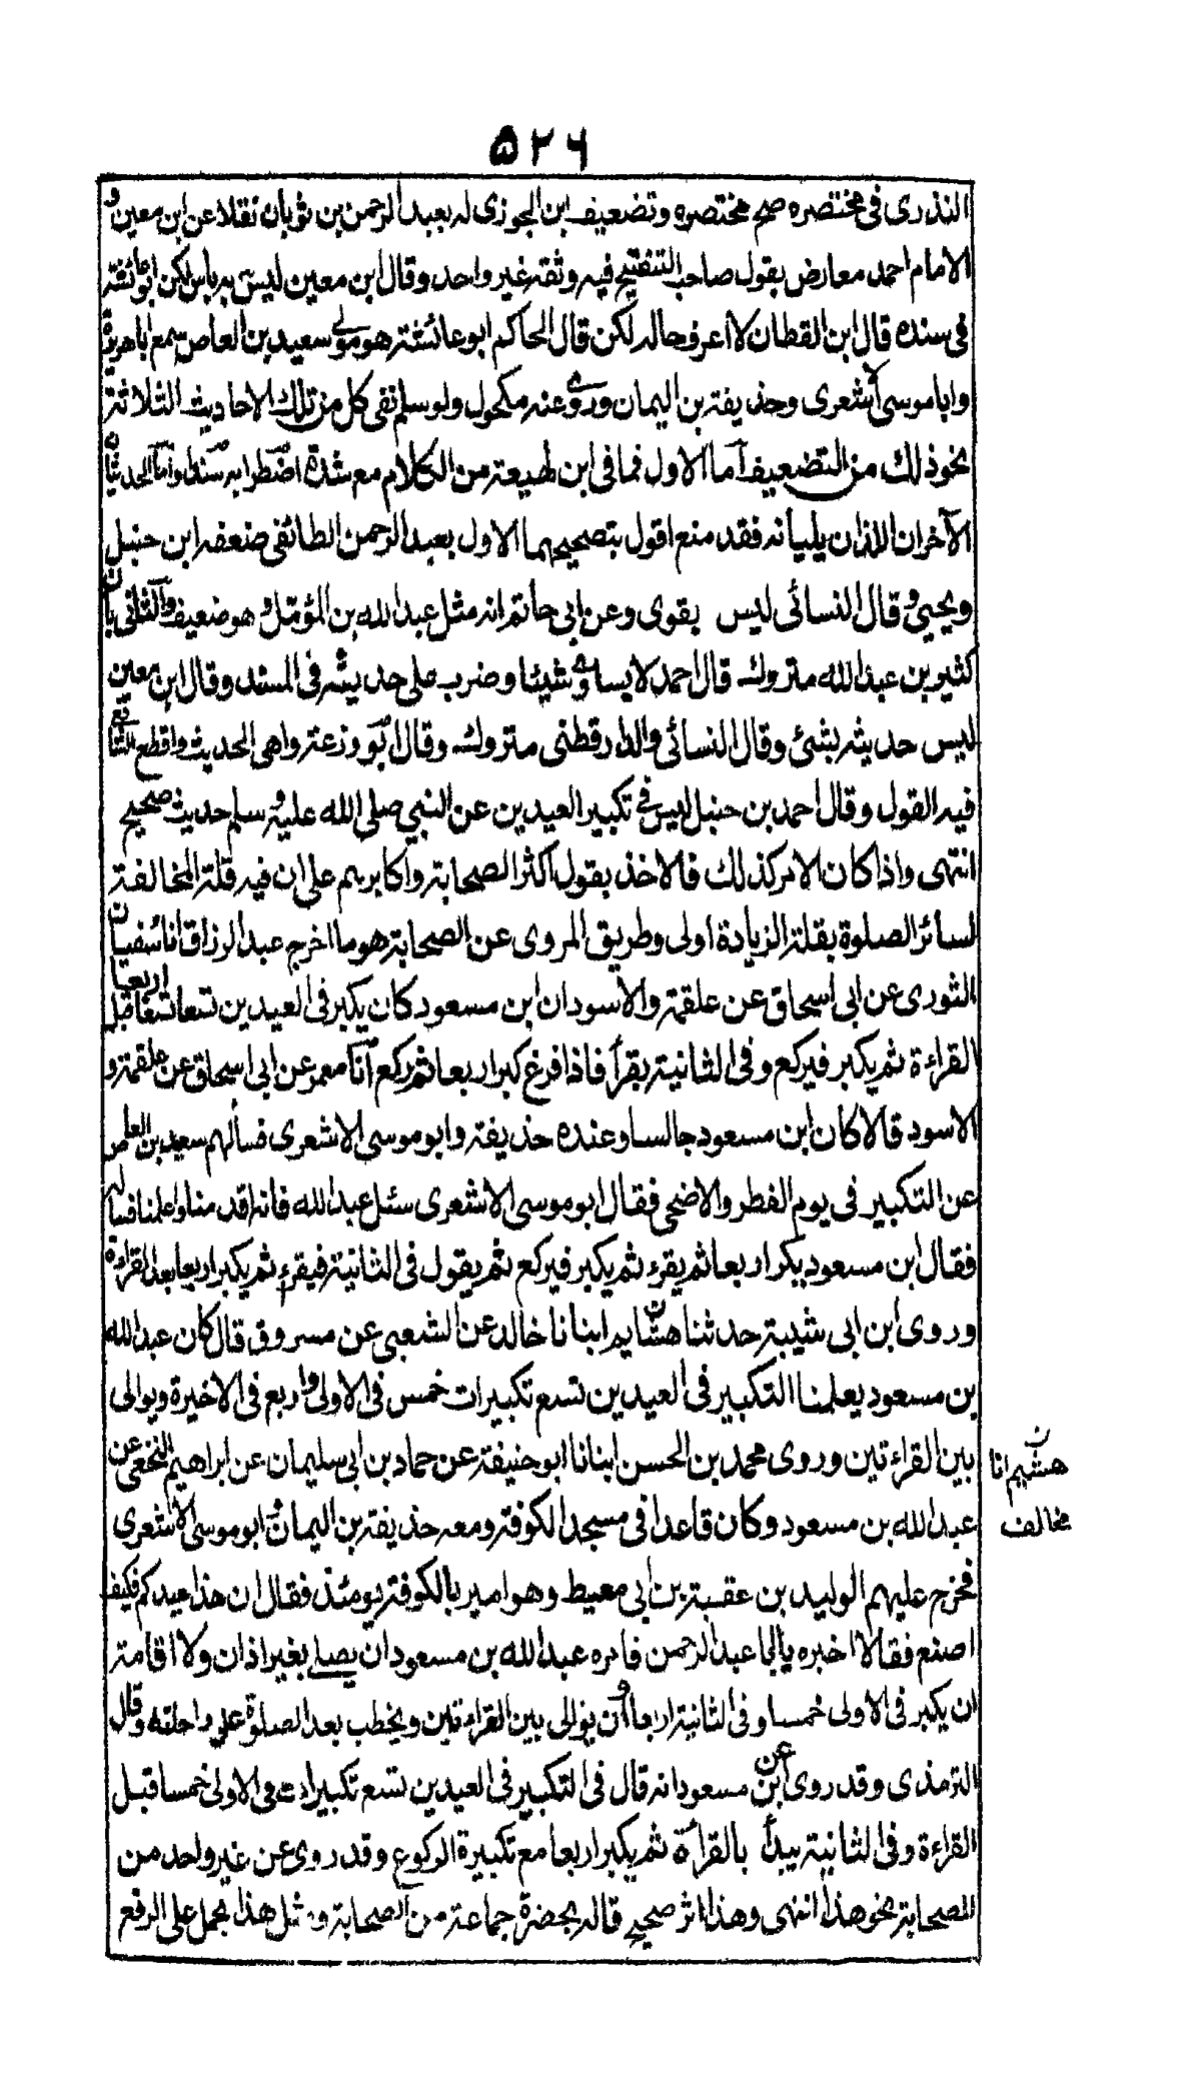 ۵۲۶
المنذری فی مختصره صحح مختصره وتضعیف ابن الجوزی له بعبد الرحمن بن ثوبان نقلا عن ابن معین و
الامام احمد معارض بقول صاحب التنقیح فیه وثقه غیر واحد وقال ابن معین لیس به باس لکن ابو عائشة
فی سنده قال ابن القطان لا اعرف حاله لکن قال الحاکم ابو عائشة هو مولی سعید بن العاص سمع ابا هریرة
وابا موسی الاشعری وحذیفة بن الیمان وروی عنه مکحول ولو سلم نفی کل من تلک الاحادیث الثلاثة
نحو ذلک من التضعیف اما الاول فما فی ابن لهیعة من الکلام مع شدة اضطرابه سندا واما الحدیثان
الآخران اللذان یلیانه فقد منع اقول بتصحیحهما الاول بعبد الرحمن الطائفی ضعفه ابن حنبل
ویحیی وقال النسائی لیس بقوی وعن ابی حاتم انه مثل عبد الله بن المؤمل وهو ضعیف والثانی بان
کثیر بن عبد الله متروک قال احمد لا یساوی شیئا وضرب علی حدیثه فی المسند وقال ابن معین
لیس حدیثه بشئ وقال النسائی والدارقطنی متروک وقال ابو زرعة واهی الحدیث واقطع الشافعی
فیه القول وقال احمد بن حنبل لیس فی تکبیر العیدین عن النبی صلی الله علیه وسلم حدیث صحیح
انتهی واذا کان الامر کذلک فالاخذ بقول اکثر الصحابة واکابرهم علی ان فیه قلة المخالفة
لسائر الصلوة بقلة الزیادة اولی وطریق المروی عن الصحابة هو ما اخرج عبد الرزاق انا سفیان
الثوری عن ابی اسحاق عن علقمة والاسود ان ابن مسعود کان یکبر فی العیدین تسعا تسعا اربعا قبل
القراءة ثم یکبر فیرکع وفی الثانیة یقرأ فاذا فرغ کبر اربعا ثم رکع انا معمر عن ابی اسحاق عن علقمة و
الاسود قالا کان ابن مسعود جالسا وعنده حذیفة وابو موسی الاشعری فسألهم سعید بن العاص
عن التکبیر فی یوم الفطر والاضحی فقال ابو موسی الاشعری سئل عبد الله فانه اقدمنا واعلمنا فساله
فقال ابن مسعود یکبر اربعا ثم یقرء ثم یکبر فیرکع ثم یقول فی الثانیة فیقرء ثم یکبر اربعا بعد القراءة
وروی ابن ابی شیبة حدثنا هشایم ابنانا خالد عن الشعبی عن مسروق قال کان عبد الله
بن مسعود یعلمنا التکبیر فی العیدین تسع تکبیرات خمس فی الاولی واربع فی الاخیرة ویوالی
بین القراءتین وروی محمد بن الحسن ابنانا ابو حنیفة عن حماد بن ابی سلیمان عن ابراهیم النخعی عن
عبد الله بن مسعود وکان قاعدا فی مسجد الکوفة ومعه حذیفة بن الیمان وابو موسی الاشعری
فخرج علیهم الولید بن عقبة بن ابی معیط وهو امیر بالکوفة یومئذ فقال ان هذا عیدکم فکیف
اصنع فقالا اخبره یا ابا عبد الرحمن فامره عبد الله بن مسعود ان یصلی بغیر اذان ولا اقامة
ان یکبر فی الاولی خمسا وفی الثانیة اربعا وان یوالی بین القراءتین ویخطب بعد الصلوة علی راحلته وقال
الترمذی وقد روی عن ابن مسعود انه قال فی التکبیر فی العیدین تسع تکبیرات فی الاولی خمسا قبل
القراءة وفی الثانیة یبدأ بالقرأة ثم یکبر اربعا مع تکبیرة الرکوع وقد روی عن غیر واحد من
الصحابة نحو هذا انتهی وهذا اثر صحیح قاله بحضرة جماعة من الصحابة ومثل هذا یحمل علی الرفع
ن
هشیم انا
مخالف